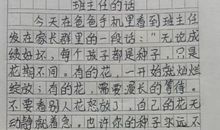 班主任的话
今天在爸爸手机里看到班主任
发在家长群里的一段话："无论成
绩好坏，每个孩子都是种子，只是
花期不同。有的花，一开始就灿烂
绽放；有的花，需要漫长的等待。
不要看别人花怒放了，自己的花无
动静就着急，也许你的种子永远不